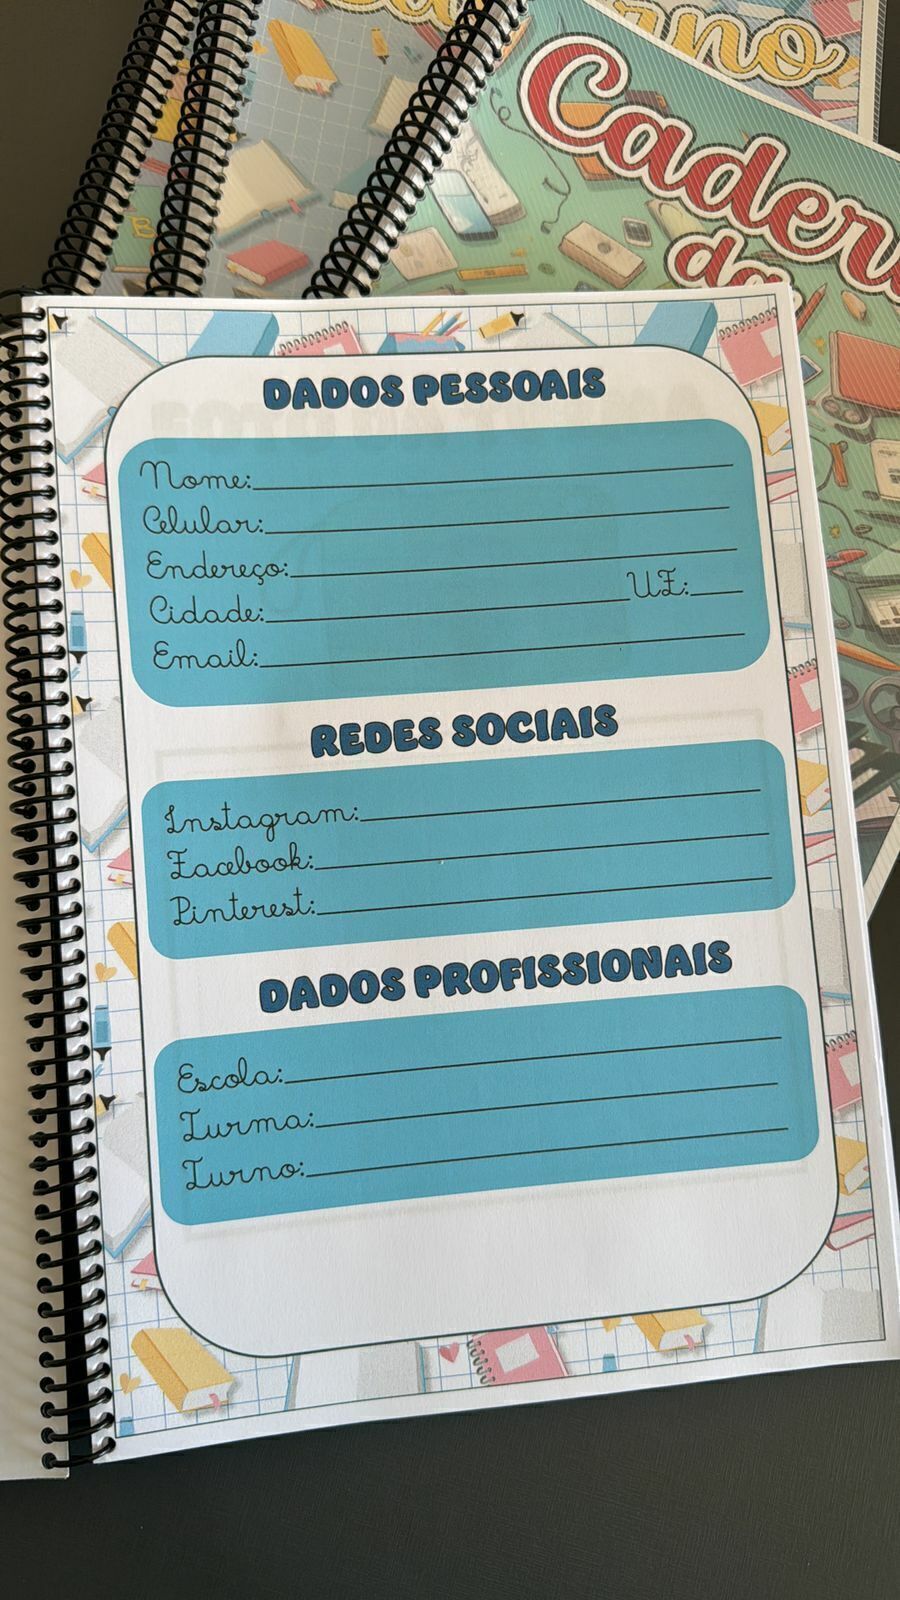 no
Cader
da
DADOS PESSOAIS
Nome:
Celular:
Endereço:
Cidade: UF:
Email:
REDES SOCIAIS
Instagram:
Facebook:
Pinterest:
DADOS PROFISSIONAIS
Escola:
Turma:
Turno: